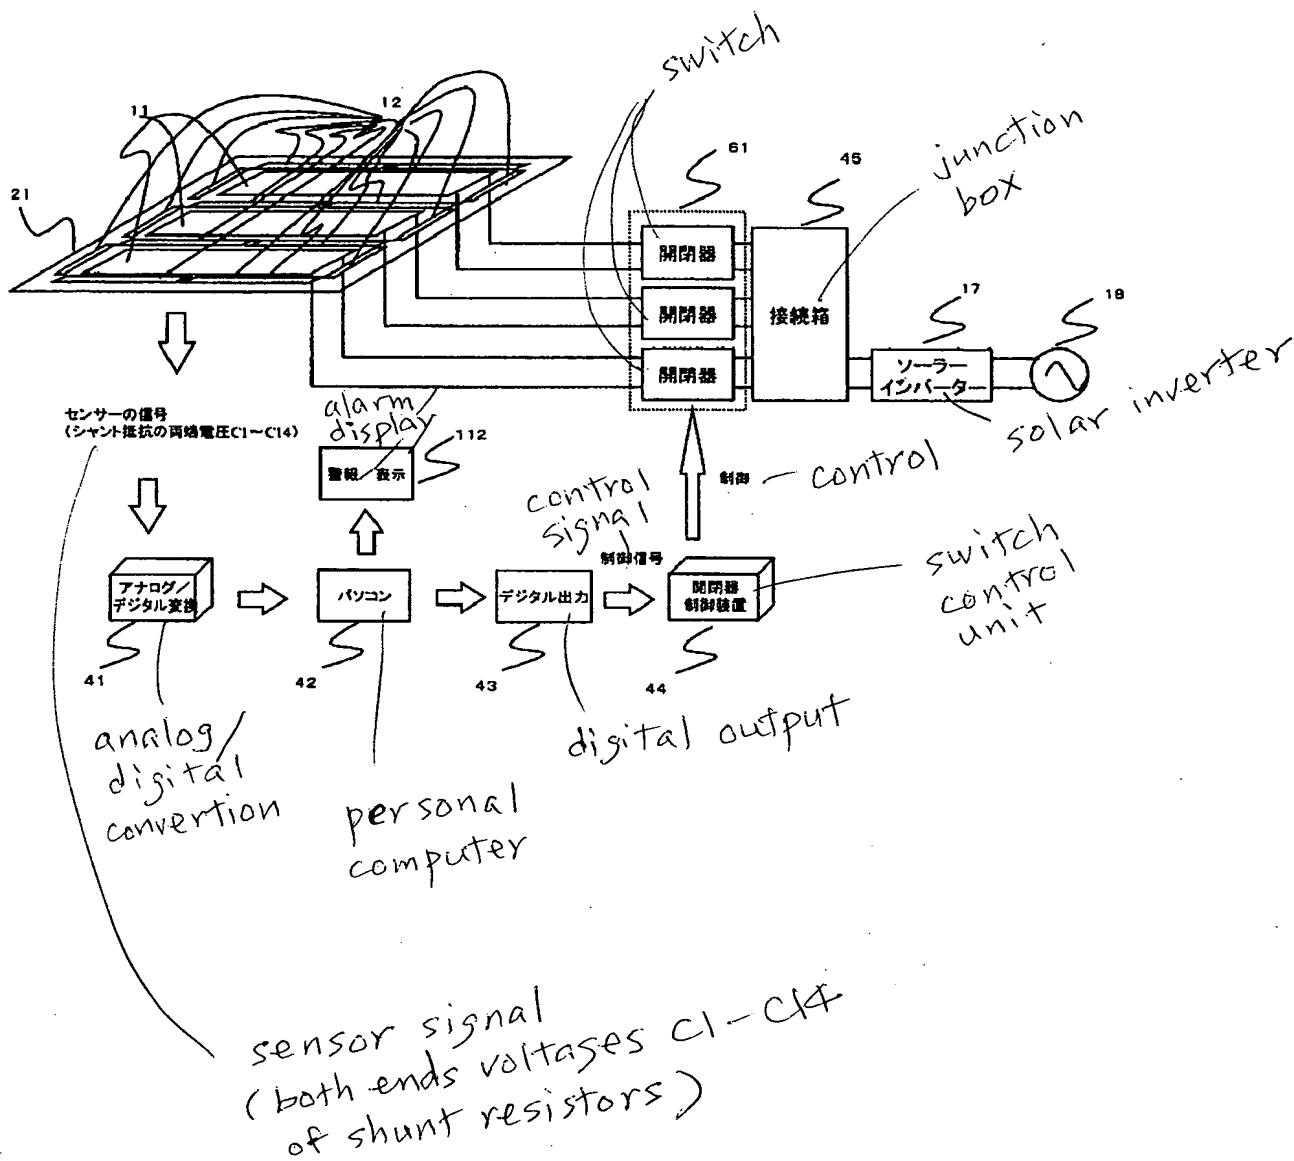 switch
11
12
61
45
junction
box
21
開閉器
開閉器
開閉器
接続箱
17
18
ソーラー
インバーター
solar inverter
センサーの信号
(シャント抵抗の両端電圧C1～C14)
alarm
display
112
警報／表示
制御
control
control
signal
制御信号
switch
control
unit
アナログ／
デジタル変換
パソコン
デジタル出力
開閉器
制御装置
41
42
43
44
analog/
digital
convertion
personal
computer
digital output
sensor signal
(both ends voltages C1-C14
of shunt resistors)